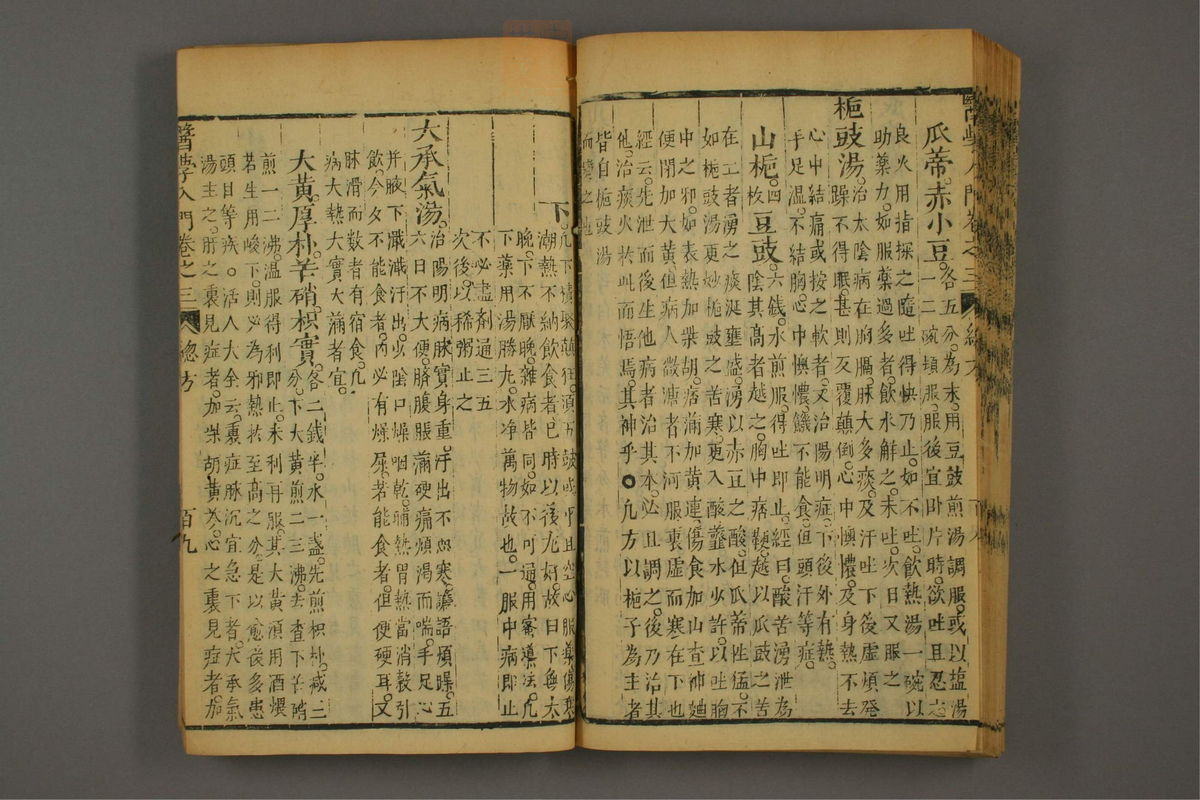 醫學入門卷之三
瓜蒂赤小豆各五分為末用豆豉煎湯調服或以塩湯
一二碗頓服服後宜卧片時欲吐且忍之
良久用指探之隨吐得快乃止如不吐飲熱湯一碗以
助藥力如服藥過多者飲水解之未吐次日又服之
梔豉湯治太陰病在胸膈脉大多痰及汗吐下後虛煩發
躁不得眠甚則反覆顛倒心中懊憹及身熱不去
心中結痛或按之軟者又治陽明症下後外有熱
手足溫不結胸心中懊憹饑不能食但頭汗等症
山梔四枚豆豉六錢水煎服得吐即止經曰酸苦湧泄為
陰其高者越之胸中痞鞕越以瓜豉之苦
在工者湧之痰涎壅盛湧以赤豆之酸但瓜蒂性猛不
如梔豉湯更妙梔豉之苦寒更入酸虀水少許以吐胸
中之邪如表熱加柴胡痞滿加黃連傷食加山查神麯
便閉加大黃但病人微溏者不可服裏虛而寒在下也
經云先泄而後生他病者治其本必且調之後乃治其
他治痰火於此而悟焉其神乎○凡方以梔子為主者
皆自梔豉湯
而變之也
下
潮熱不納飲食者巳時以後尤好故曰下無太
晚下不厭晚雜病皆同如不可通用審導法凡
下藥用湯勝丸水淨萬物故也一服中病即止
不必盡劑通三五
次後以稀粥止之
大承氣湯治陽明病脉實身重汗出不惡寒譫語煩躁五
六日不大便臍腹脹滿硬痛煩渴而喘手足心
并腋下濈濈汗出少陰口燥咽乾晡熱胃熱當消穀引
飲今久不能食者內必有燥屎若能食者但便硬耳又
脉滑而數者有宿食凡
病大熱大實大滿者宜
大黃厚朴芒硝枳實各二錢半水一盞先煎枳朴減三
分下大黃煎二三沸去查下芒硝
煎一二沸溫服得利即止未利再服其大黃須用酒煨
若生用峻下則必為邪熱於至高之分是以愈後多患
頭目等疾○活人大全云裏症脉沉宜急下者大承氣
湯主之肝之裏見症者加柴胡黃芩心之裏見症者加
醫學入門卷之三
總方
百九